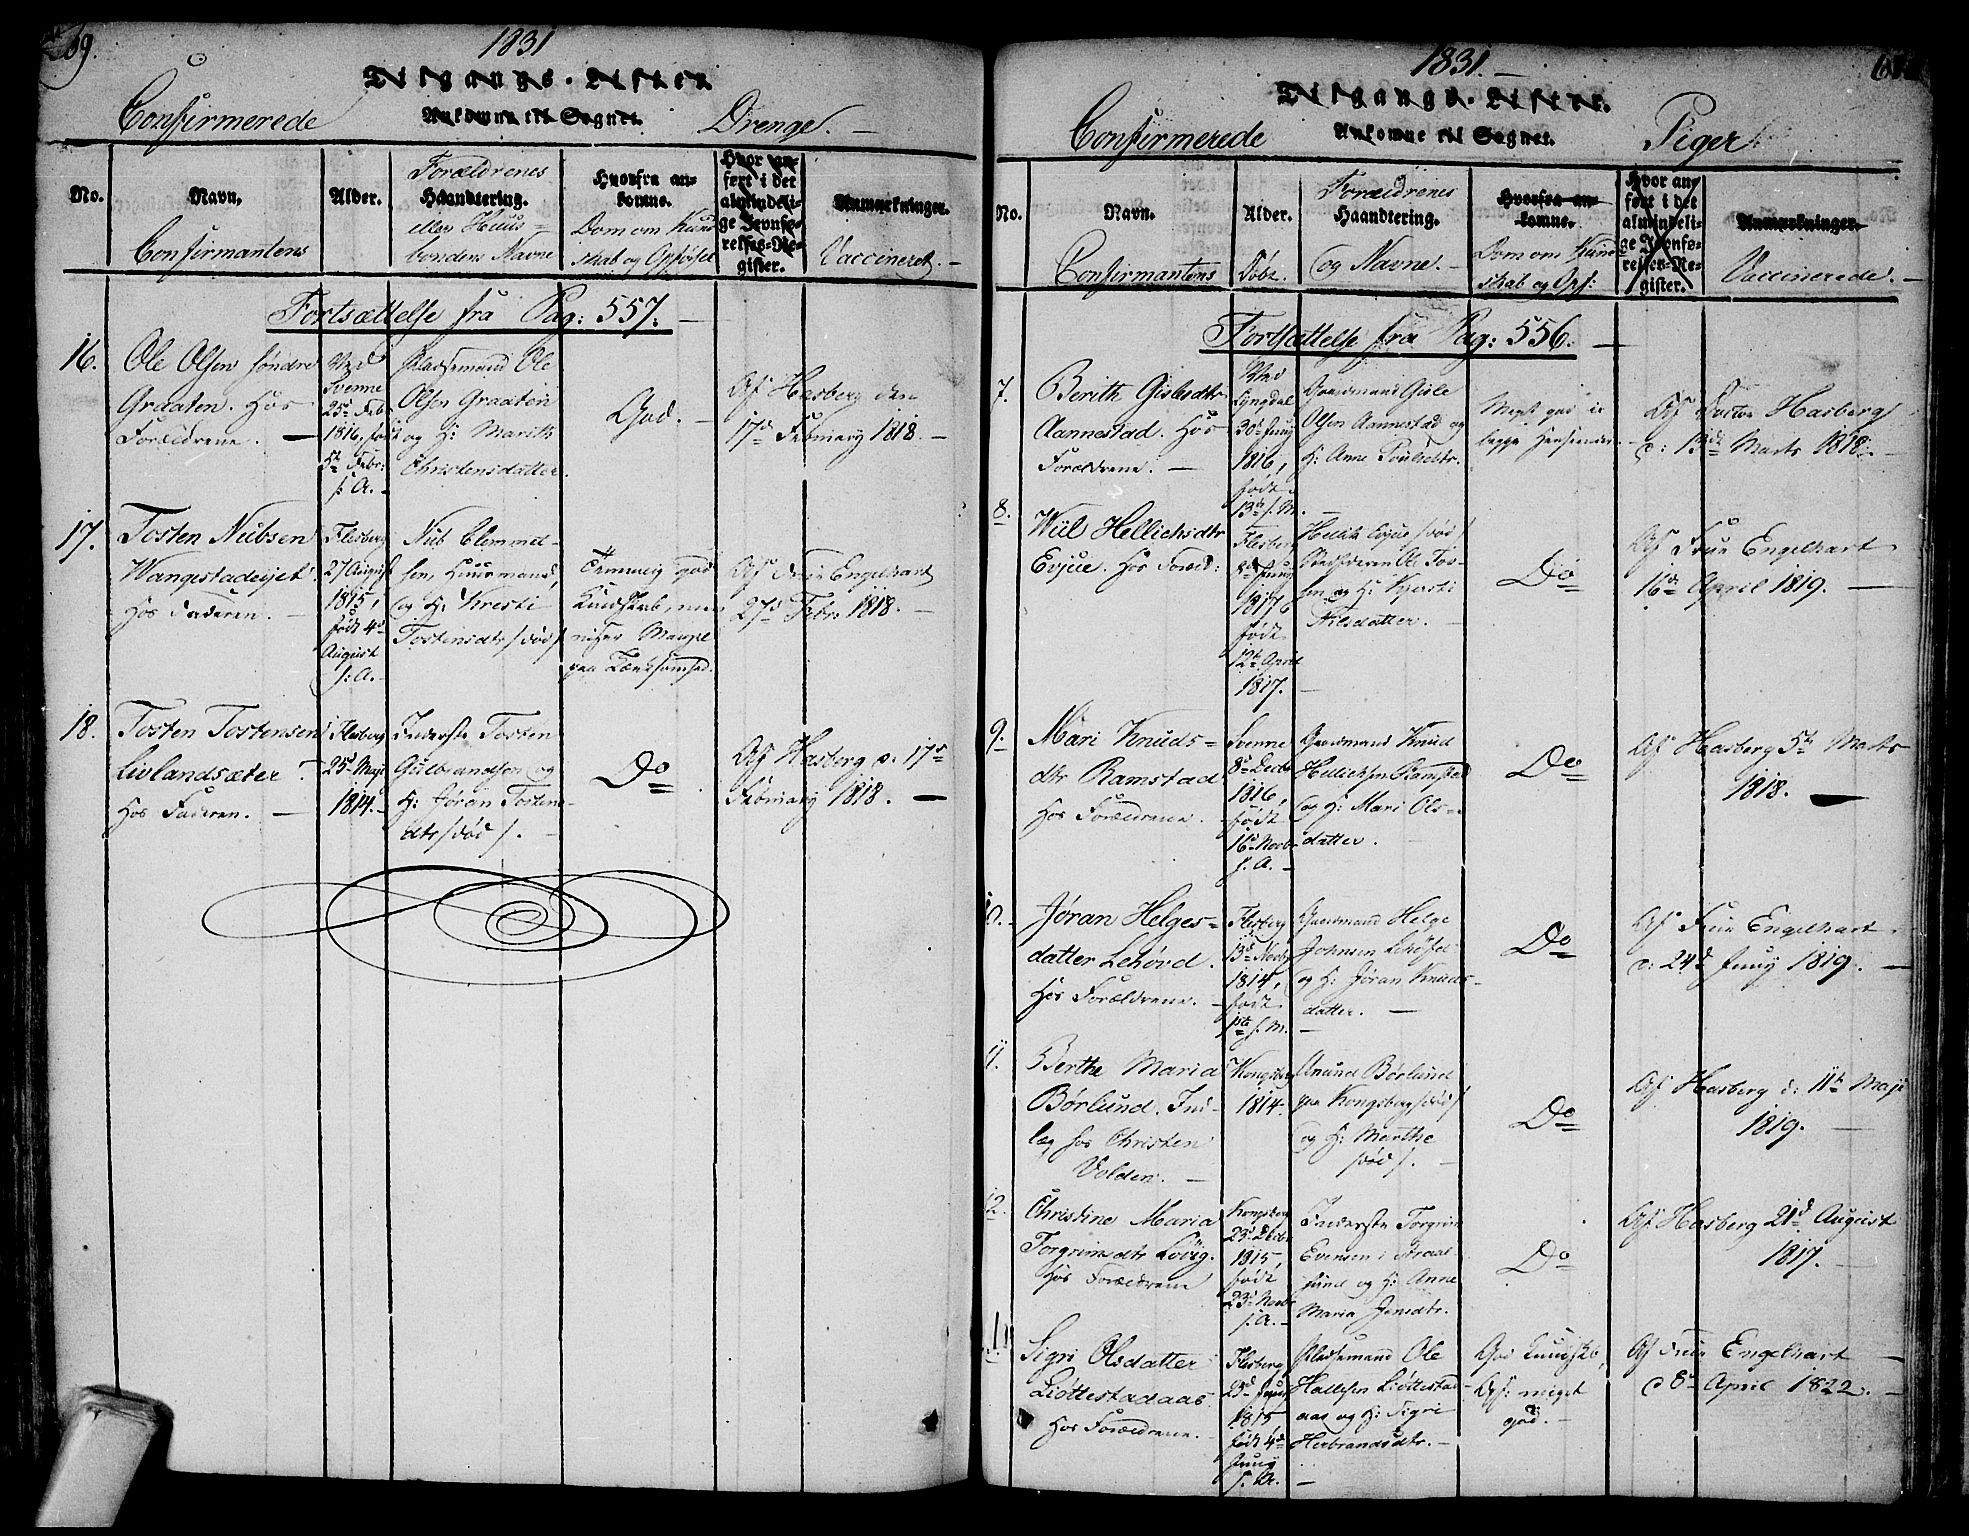 1831
Tilgangs-Lister
Confirmerede Ankomne til Sognet. Drenge. —
No.
Navn.
Confirmantens
Alder.
Forældrenes
Haandtering.
eller Huus=
bondens Navne
Hvorfra an-
komne.
Dom om Kund
skab og Opførsel
Hvor an-
ført i det
almindeli-
ge Jevnfø-
relses-Re-
gister.
Anmærkninger.
Vaccineret. —
Fortsættelse fra Pag: 557. —
16.
Ole Olsen søndre
Graaten. Hos
Forældrene. —
Svenne
25d Febr
1816, født
5te Febr:
s: A. —
Pladsemand Ole
Olsen Graaten
og H: Marith
Christensdatter.
God. —
Af Hasberg den
17de February 1818. —
17.
Tosten Nubsen
Wangestadeiet.
Hos Faderen. —
Flesberg
27 August
1815,
født 4d
August
s: A. —
Nub Clemmet-
sen, Huusmand,
og H: Kresti
Tostensdtr /død/
Temmelig god
Kundskab, men
paa Tænksomhed.
Af Frue Engelhart
27d Febr. 1818. —
18.
Tosten Tostensen
Livlandsæter.
Hos Faderen. —
Flesberg
25d Maji
1814. —
Inderste Tosten
Gulbrandsen og
H: Jøran Tostens-
dtr /død/. —
Do
Af Hasberg d: 17de
February 1818. —
1831. —
Tilgangs-Lister.
Confirmerede Ankomne til Sognet. Piger
No.
Navn.
Confirmantens
Alder.
Døbt.
Forældrenes
Haandtering.
og Navne. —
Hvorfra an-
komne.
Dom om Kund
skab og Opf:
Hvor an-
ført i det
almindeli-
ge Jevnfø-
relses-Re-
gister.
Anmærkninger.
Vaccinerede. —
Fortsættelse fra Pag: 556. —
7.
Berith Gislesdtr
Aannestad. Hos
Forældrene. —
Lyngdal
30d Juny
1816,
født
13de s. M. —
Gaardmand Gisle
Olsen Aannestad og
H: Anne Poulsdtr.
Meget god i
begge Henseender. —
Af Doctor Hasberg
d: 13de Marts 1818. —
8.
Wiil Hellichsdtr
Evjue. Hos Foræld:
Flesberg
1817,
født
12te April
1817. —
Hellik Evjue /død/
Stedfaderen Ole Tos-
sen og H: Kjersti
Nilsdatter. —
Do
Af Frue Engelhart
16de April 1819. —
9.
Mari Knuds=
dtr Ramstad
Hos Forældrene. —
Svenne
8de Decbr
1816,
født
16d Novbr
s. A. —
Gaardmand Knud
Hellichsen Ramstad
og H: Mari Ols=
datter. —
Do
Af Hasberg 5te Marts
1818. —
10.
Jøran Helges=
datter Lehovd.
Hos Forældrene. —
Flesberg
13de Novbr
1814,
født
1ste s. M. —
Gaardmand Helge
Johnsen Lehovd
og H: Jøran Knuds-
datter. —
Do
Af Frue Engelhart
d: 24de Juny 1819. —
11.
Berthe Maria
Børlund. Ind-
læg hos Christen
Volden. —
Kongsberg
1814.
Anund Børlund
paa Kongsberg /død/
og H: Marthe
/død/. —
Do
Af Hasberg d: 11te Maji
1819. —
12.
Christine Maria
Torgrimsdtr Lovig.
Hos Forældrene
Kongsberg
25d Decbr
1815,
født
23d Novbr
s. A. —
Inderste Torgrim
Evensen i Straal-
sund og H: Anne
Maria Jensdtr.
Do
Af Hasberg 21de August
1817. —
Sigri Olsdatter
Liøttestadaas.
Hos Forældrene. —
Flesberg
25d Juny
1815
født 4de
Juny
s. A. —
Pladsemand Ole
Hallesen Liøttestad-
aas og H: Sigri
Herbrandsdtr. —
God Kundskab,
Opf: meget
god. —
Af Frue Engelhart —
d 8de April 1822. —